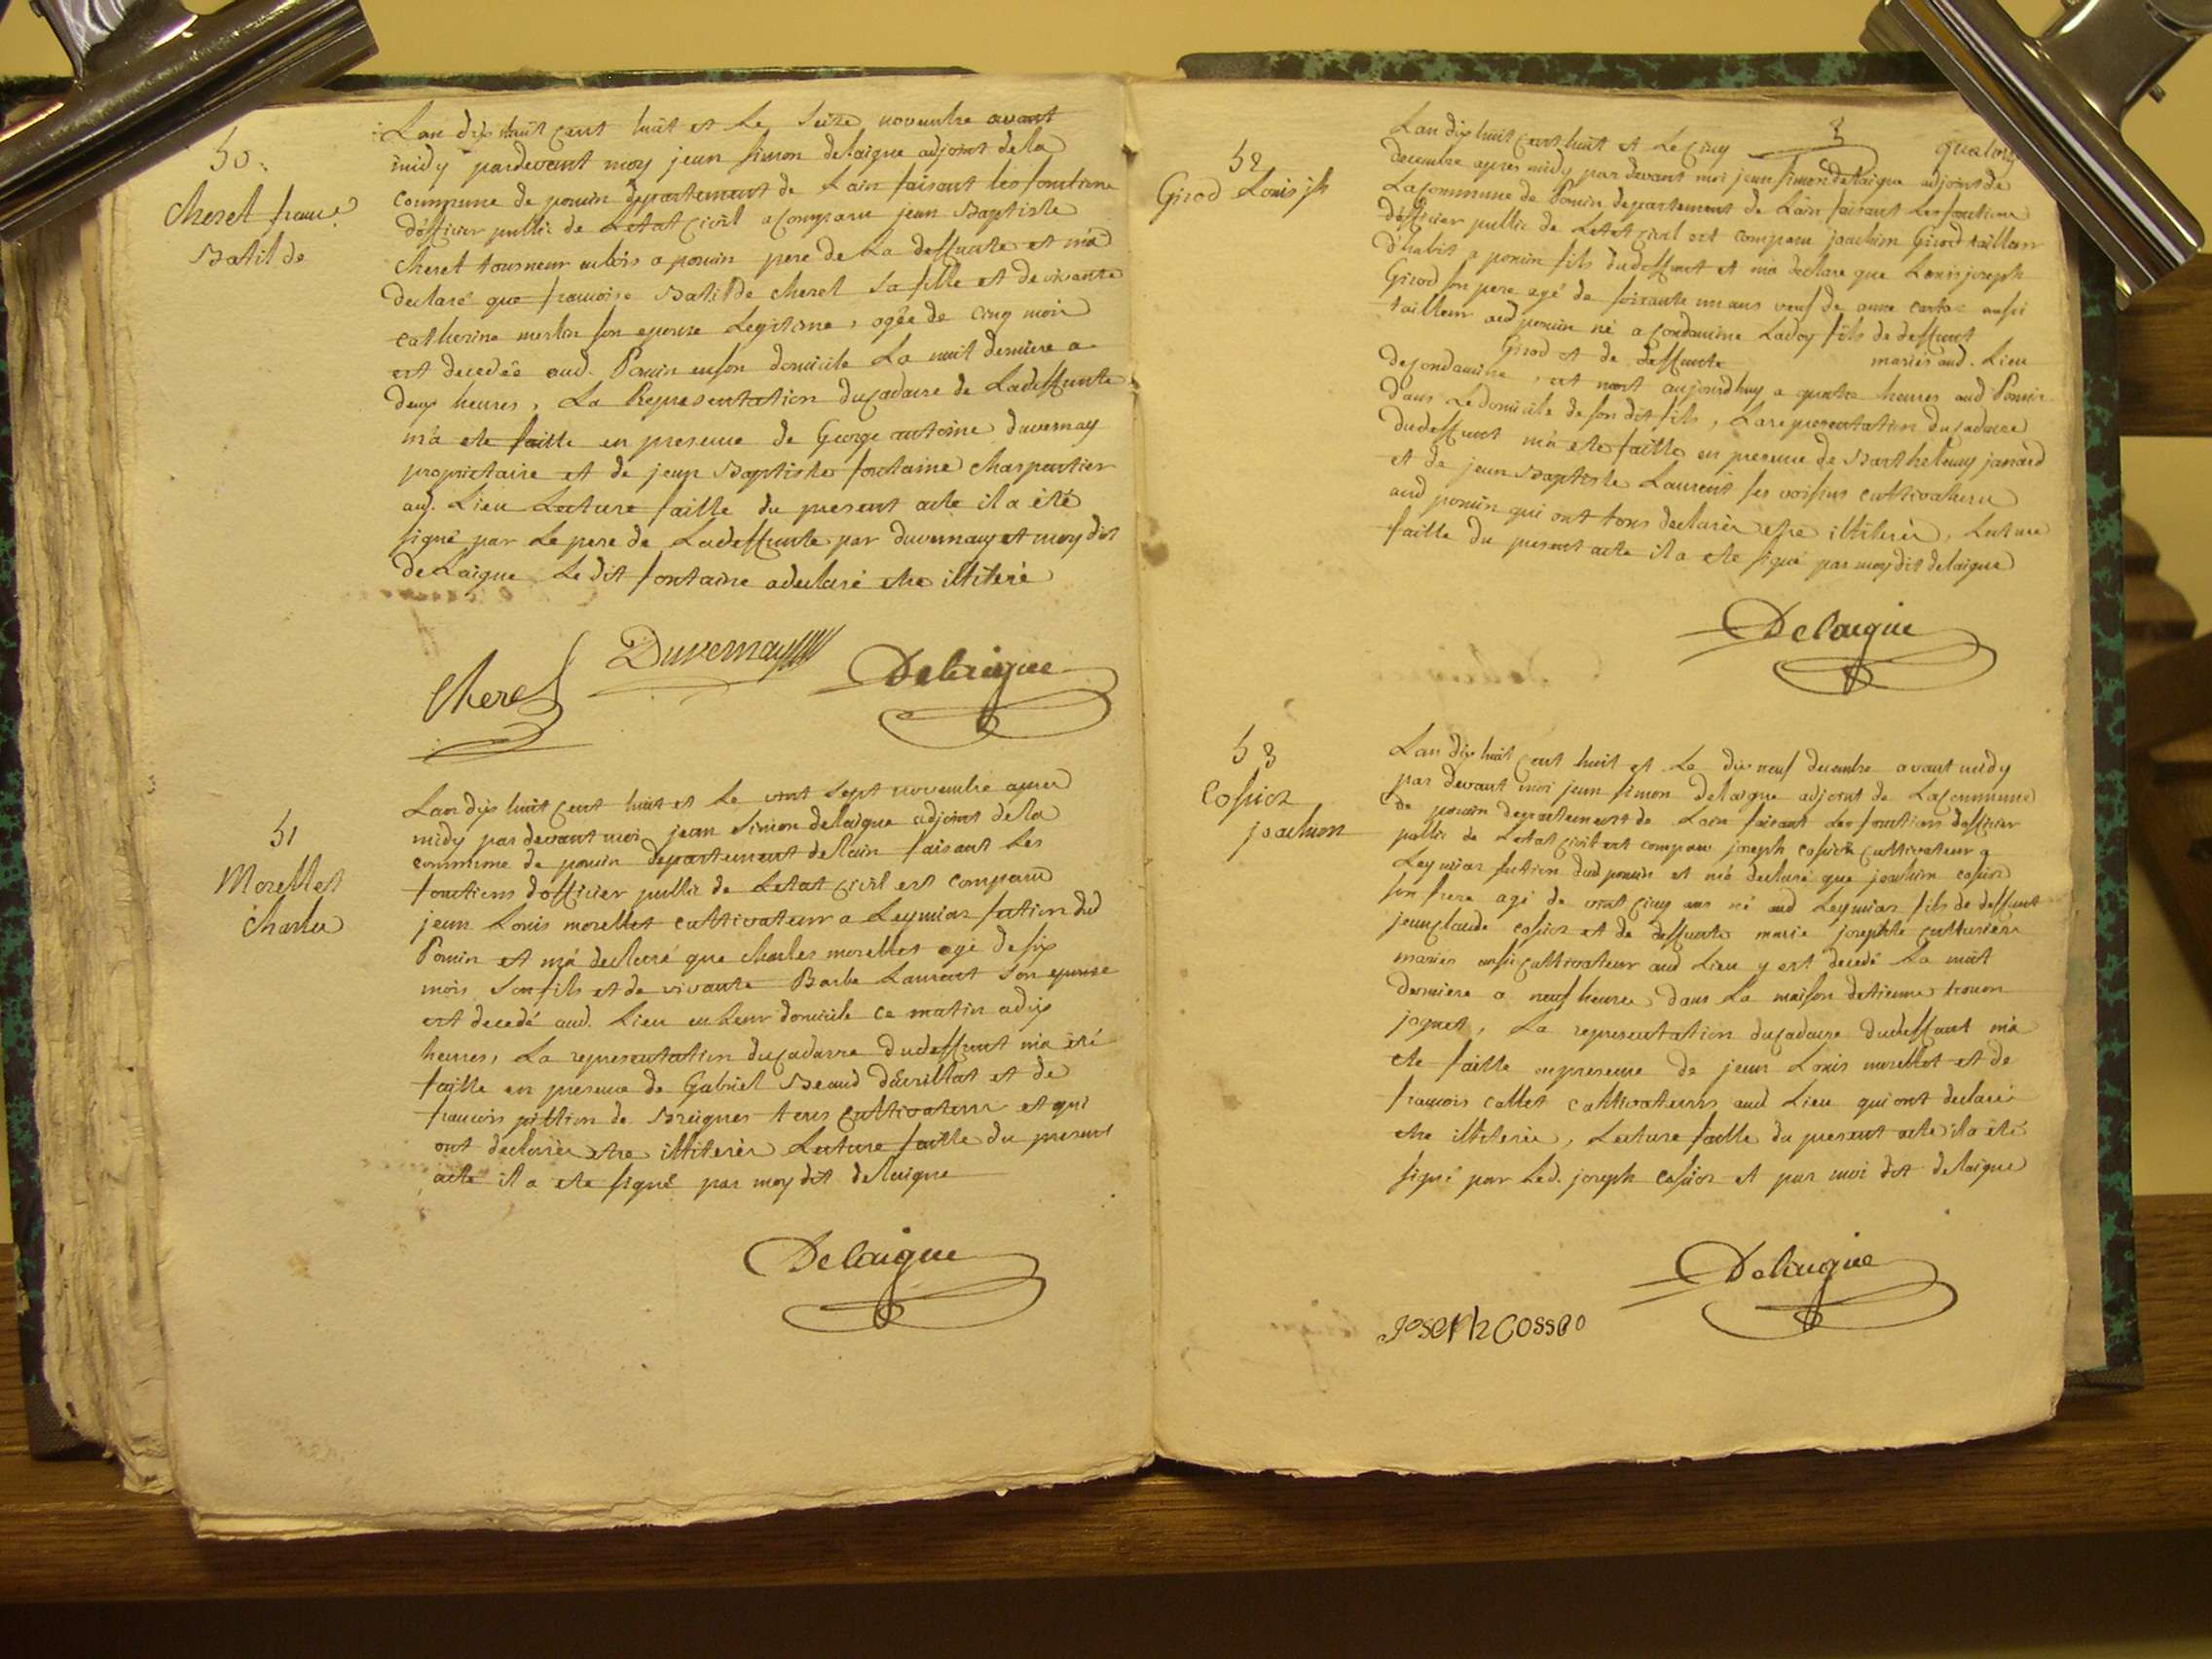 50.
Cheret franc.e
Batilde
Lan dix huit cent huit et Le Seize novembre avant
midy pardevant moy jean simon delaigue adjoint de la
commune de poncin departement de Lain faisant les fonctions
d'officier public de Letat civil a comparu jean Baptiste
Cheret tourneur en bois a poncin pere de La deffunte et m'a
declaré que francoise Batilde cheret sa fille et de vivante
catherine merlin son epouse Legitime, agée de cinq mois
est decedée aud. Poncin en son domicile La nuit derniere a
deux heures, La Representation du cadavre de Ladeffunte
m'a ete faitte en presence de George antoine duvernay
proprietaire et de jean Baptiste fontaine charpentier
aud. Lieu Lecture faitte du present acte il a été
signé par Le pere de Ladeffunte par duvernay et moy dit
deLaigue Le dit fontaine a declaré etre illiteré
Cheret
Duvernay
Delaigue
51
Morellet
Charles
Lan dix huit cent huit et Le vint sept novembre apres
midy par devant moi jean Simon delaigue adjoint de la
commune de poncin departement de Lain faisant Les
fonctions d'officier public de Letat civil est comparu
jean Louis morellet cultivateur a Leymiat section dud
Poncin et m'a declaré que charles morellet agé de six
mois son fils et de vivante Barbe Laurent son epouse
est decedé aud. Lieu en Leur domicile ce matin a dix
heures, La representation du cadavre dudeffunt m'a été
faitte en presence de Gabriel Beaud d'avrillat et de
francois pittion de Breignes tous cultivateurs et qui
ont declarés etre illiterés Lecture faitte du present
acte il a ete signé par moy dit delaigue
Delaigue
52
Girod Louis jh
Lan dix huit cent huit et Le cinq quatorze
decembre apres midy par devant moi jean simon delaigue adjoint de
La commune de Poncin departement de Lain faisant Les fonctions
d'officier public de Letat civil est comparu joachim Girod tailleur
d'habit a poncin fils dudeffunt et m'a declaré que Louis joseph
Girod son pere agé de soixante un ans veuf de anne aussi
tailleur aud poncin né a condamine Ladoy fils de deffunt
Girod et de deffunte mariés aud. Lieu
de condamine, est mort aujourdhuy a quatre heures aud Poncin
dans Le domicile de son dit fils, La representation du cadavre
dudeffunt m'a ete faitte en presence de Barthelemy janard
et de jean Baptiste Laurent ses voisins cultivateurs
aud poncin qui ont tous declarés etre illiterés, Lecture
faitte du present acte il a ete signé par moy dit delaigue
Delaigue
53
Cossior
joachim
Lan dix huit cent huit et Le dix neuf decembre avant midy
par devant moi jean simon delaigue adjoint de La commune
de poncin departement de Lain faisant Les fonctions d'officier
public de Letat civil est comparu joseph cossior cultivateur a
Leymiat section dud poncin et m'a declaré que joachim cossior
son frere agé de vint cinq ans né aud Leymiat fils de deffunt
jean claude cossior et de deffunte marie josephte
mariés aussi cultivateurs aud Lieu y est decedé La nuit
derniere a neuf heures dans La maison detienne
jaquet, La representation du cadavre dudeffunt m'a
ete faitte en presence de jean Louis morellet et de
francois callet cultivateurs aud Lieu qui ont declarés
etre illiterés, Lecture faitte du present acte il a été
signé par Led. joseph cossior et par moi dit delaigue
Delaigue
Joseph Cosseo